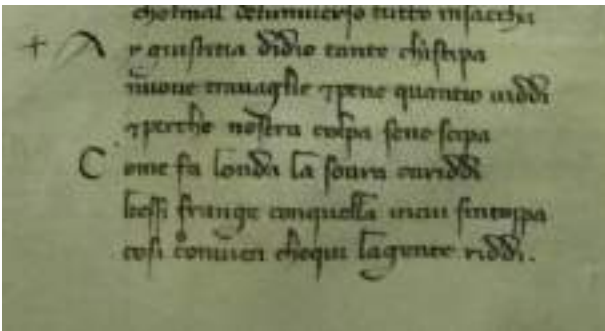 chelmal deluniuerso tutto insaccha
A y giustitia didio tante chistipa
nuoue trauaglie 7pene quantio uiddi
7perche nostra colpa sene scipa
C ome fa londa la soura cariddi
kessi frange conquella incui sintoppa
cosi conuien chequi lagente riddi.